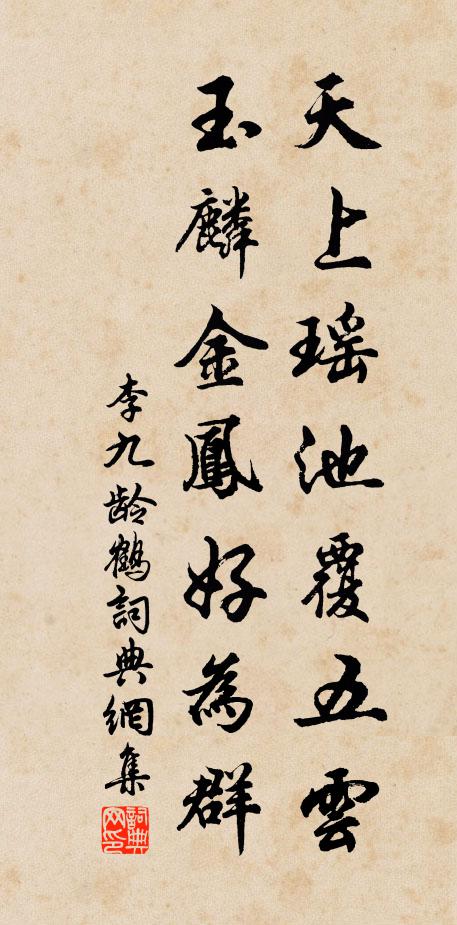 天上瑶池覆五雲
玉麟金鳳好為群
李九龄鶴詞典網集
詞典网印